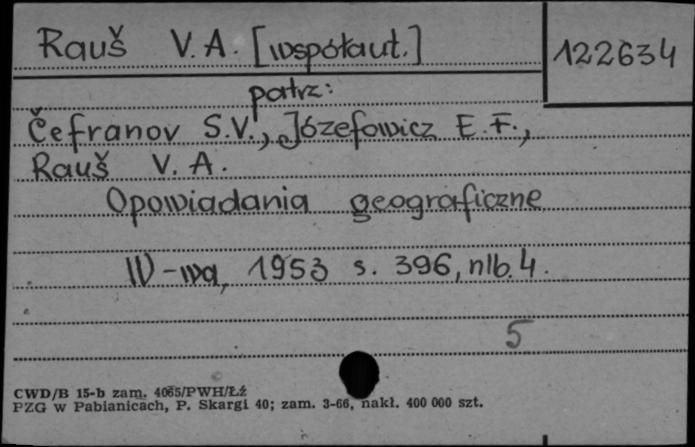 Rauš V. A. [współaut.] 122634
patrz:
Čefranov S.V., Józefowicz E. F.,
Rauš V. A.
Opowiadania geograficzne
W-wa, 1953 s. 396, nlb. 4.
5
CWD/B 15-b zam. 4065/PWH/Łź
PZG w Pabianicach, P. Skargi 40; zam. 3-66, nakł. 400 000 szt.